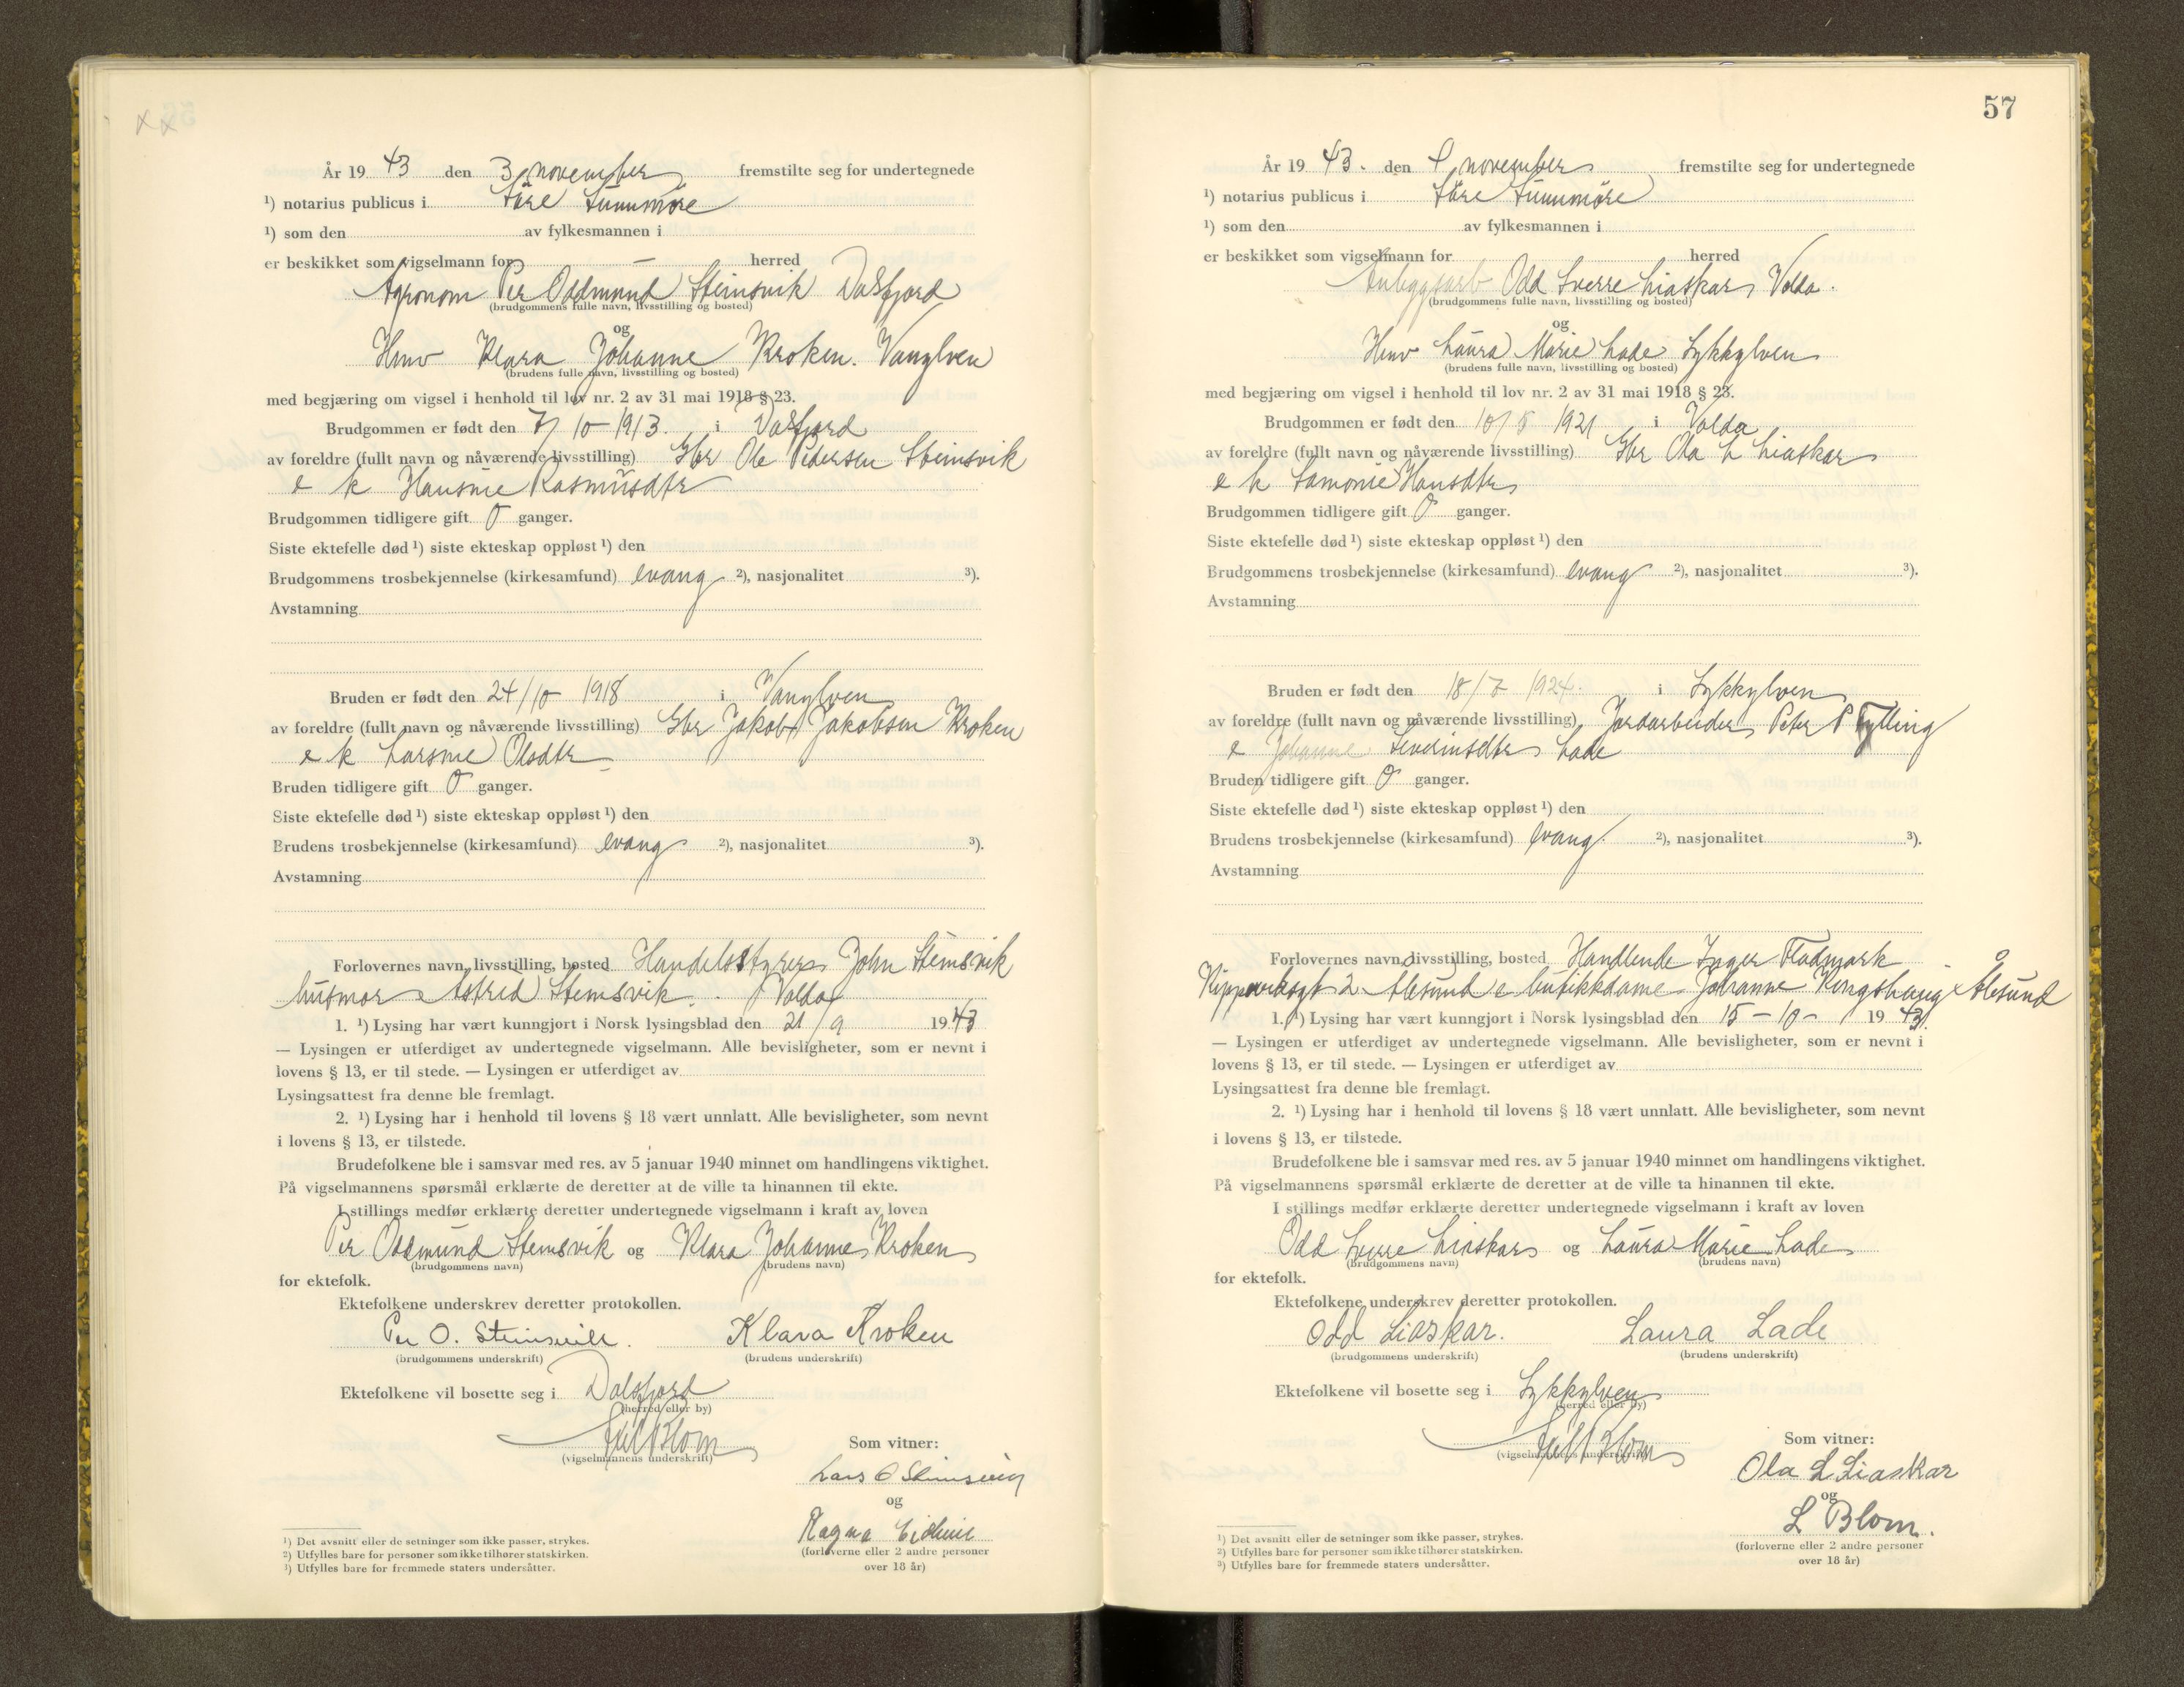 År 19 43 den 3 november fremstilte seg for undertegnede
¹) notarius publicus i Søre Sunnmøre
¹) som den av fylkesmannen i
er beskikket som vigselmann for — herred
Agronom Per Oddmund Steinsvik Dalsfjord
(brudgommens fulle navn, livsstilling og bosted)
og
Hmv Klara Johanne Kroken. Vanylven
(brudens fulle navn, livsstilling og bosted)
med begjæring om vigsel i henhold til lov nr. 2 av 31 mai 1918 § 23.
Brudgommen er født den 7/10-1913. i Dalsfjord
av foreldre (fullt navn og nåværende livsstilling) Gbr Ole Pedersen Steinsvik
e k Hansine Rasmusdtr
Brudgommen tidligere gift 0 ganger.
Siste ektefelle død ¹) siste ekteskap oppløst ¹) den
Brudgommens trosbekjennelse (kirkesamfund) evang ²), nasjonalitet ³).
Avstamning
Bruden er født den 24/10 1918 i Vanylven
av foreldre (fullt navn og nåværende livsstilling) Gbr Jakob Jakobsen Kroken
e k Larsine Olsdtr
Bruden tidligere gift 0 ganger.
Siste ektefelle død ¹) siste ekteskap oppløst ¹) den
Brudens trosbekjennelse (kirkesamfund) evang ²), nasjonalitet ³).
Avstamning
Forlovernes navn, livsstilling, bosted Handelsstyrer John Steinsvik
husmor Astrid Steinsvik. Volda
1. ¹) Lysing har vært kunngjort i Norsk lysingsblad den 21/9 1943
— Lysingen er utferdiget av undertegnede vigselmann. Alle bevisligheter, som er nevnt i
lovens § 13, er til stede. — Lysingen er utferdiget av
Lysingsattest fra denne ble fremlagt.
2. ¹) Lysing har i henhold til lovens § 18 vært unnlatt. Alle bevisligheter, som nevnt
i lovens § 13, er tilstede.
Brudefolkene ble i samsvar med res. av 5 januar 1940 minnet om handlingens viktighet.
På vigselmannens spørsmål erklærte de deretter at de ville ta hinannen til ekte.
I stillings medfør erklærte deretter undertegnede vigselmann i kraft av loven
Per Oddmund Steinsvik og Klara Johanne Kroken
(brudgommens navn) (brudens navn)
for ektefolk.
Ektefolkene underskrev deretter protokollen.
Per O. Steinsvik. Klara Kroken
(brudgommens underskrift) (brudens underskrift)
Ektefolkene vil bosette seg i Dalsfjord
(herred eller by)
Blom
(vigselmannens underskrift)
Som vitner:
Lars O Steinsvik
og
Ragna
(forloverne eller 2 andre personer
over 18 år)
¹) Det avsnitt eller de setninger som ikke passer, strykes.
²) Utfylles bare for personer som ikke tilhører statskirken.
³) Utfylles bare for fremmede staters undersåtter.
57
År 19 43. den 4 november fremstilte seg for undertegnede
¹) notarius publicus i Søre Sunnmøre
¹) som den av fylkesmannen i
er beskikket som vigselmann for herred
Anleggsarb Odd Sverre Liaskar, Volda.
(brudgommens fulle navn, livsstilling og bosted)
og
Hmv Laura Marie Lade Sykkylven
(brudens fulle navn, livsstilling og bosted)
med begjæring om vigsel i henhold til lov nr. 2 av 31 mai 1918 § 23.
Brudgommen er født den 10/8 1921 i Volda
av foreldre (fullt navn og nåværende livsstilling) Gbr Ola L Liaskar
e k Samonie Hansdtr
Brudgommen tidligere gift 0 ganger.
Siste ektefelle død ¹) siste ekteskap oppløst ¹) den
Brudgommens trosbekjennelse (kirkesamfund) evang ²), nasjonalitet ³).
Avstamning
Bruden er født den 18/7 1924. i Sykkylven
av foreldre (fullt navn og nåværende livsstilling) Jordarbeider Peter P Tylling
e Johanne Severinsdtr Lade
Bruden tidligere gift 0 ganger.
Siste ektefelle død ¹) siste ekteskap oppløst ¹) den
Brudens trosbekjennelse (kirkesamfund) evang ²), nasjonalitet ³).
Avstamning
Forlovernes navn, livsstilling, bosted Handlende Inger Fladmark
2 Ålesund e butikkdame Johanne Ringshaug Ålesund
1. ¹) Lysing har vært kunngjort i Norsk lysingsblad den 15-10- 1943.
— Lysingen er utferdiget av undertegnede vigselmann. Alle bevisligheter, som er nevnt i
lovens § 13, er til stede. — Lysingen er utferdiget av
Lysingsattest fra denne ble fremlagt.
2. ¹) Lysing har i henhold til lovens § 18 vært unnlatt. Alle bevisligheter, som nevnt
i lovens § 13, er tilstede.
Brudefolkene ble i samsvar med res. av 5 januar 1940 minnet om handlingens viktighet.
På vigselmannens spørsmål erklærte de deretter at de ville ta hinannen til ekte.
I stillings medfør erklærte deretter undertegnede vigselmann i kraft av loven
Odd Sverre Liaskar og Laura Marie Lade
(brudgommens navn) (brudens navn)
for ektefolk.
Ektefolkene underskrev deretter protokollen.
Odd Liaskar. Laura Lade
(brudgommens underskrift) (brudens underskrift)
Ektefolkene vil bosette seg i Sykkylven
(herred eller by)
Blom
(vigselmannens underskrift)
Som vitner:
Ola L Liaskar
og
L Blom.
(forloverne eller 2 andre personer
over 18 år)
¹) Det avsnitt eller de setninger som ikke passer, strykes.
²) Utfylles bare for personer som ikke tilhører statskirken.
³) Utfylles bare for fremmede staters undersåtter.